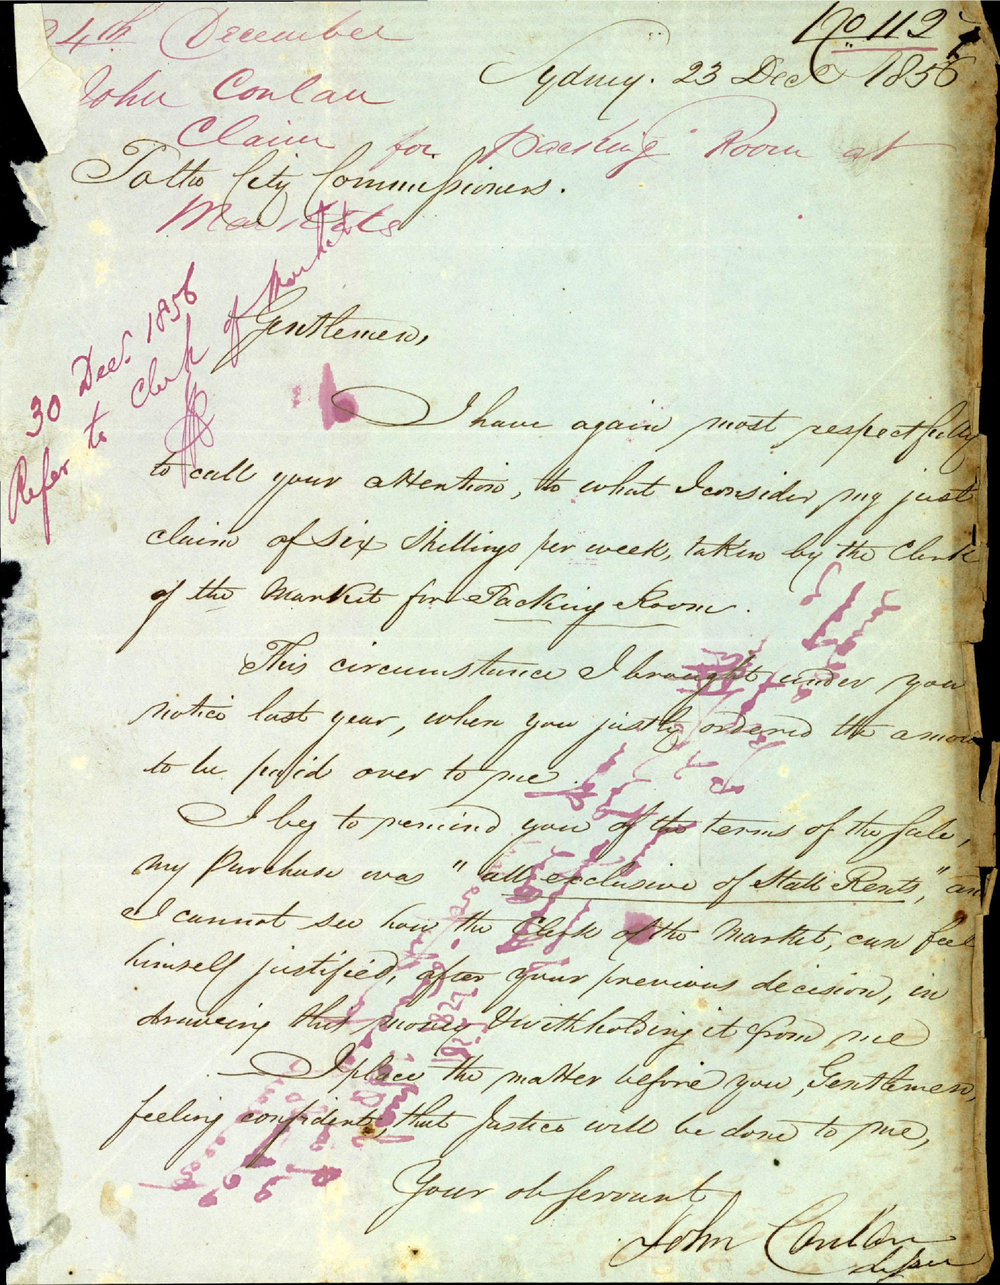 24th December
No 1127
Sydney. 23 Decr 1856
John Conlan
Claim for Packing Room at
To the City Commissioners.
Markets
30 Decr. 1856
Refer to Clerk of Market
Gentlemen,
I have again most respectfully
to call your attention, to what I consider my just
claim of six shillings per week, taken by the Clerk
of the Market for Packing Room.
This circumstance I brought under you
notice last year, when you justly ordered the amou
to be paid over to me.
I beg to remind you of the terms of the Sale,
my Purchase was "all exclusive of Stall Rents," and
I cannot see how the Clerk of the Market, can feel
himself justified, after your previous decision, in
drawing this money & withholding it from me
I place the matter before you, Gentlemen,
feeling confident, that Justice will be done to me,
Your ob Servant
John Conlan